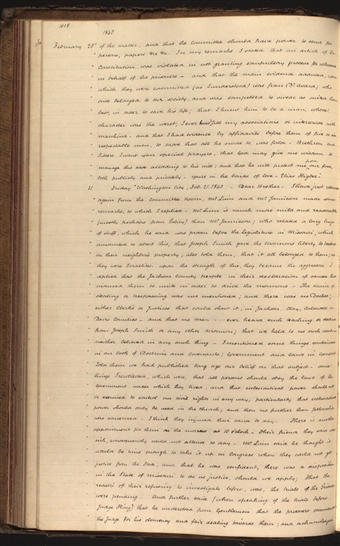 1840
February 21st of the matter, and that the Committee should have power to send for
persons, papers &c &c. In my remarks I stated that an article of the
Constitution was violated in not granting compulsory process for witnesses
in behalf of the prisoners — and that the main evidence adduced, upon
which they were committed (as I understood) was from
once belonged to our society, and was compelled to swear as
best, in order to save his life; that I knew him to be a man, whose
character was the worst; I never had my associations or intercourse with
mankind — and that I had evidence by affidavits before them of five or six
respectable men, to prove that all he swore to was false. — Brethren and
Sisters I want your special prayers, that God may give me wisdom to
manage this case according to his will; and that he will protect me from
both publicly and privately. — yours in the bonds of love — Elias Higbee.
Friday Washington City, Feb. 21. 1840 — Dear Brother. I have just returned
again from the Committee Room, Mr Linn and Mr Jannison made some
remarks, to which I replied. Mr Linn is much more mild and reasonable
(mostly, perhaps, policy being) than Mr Jannison; who related a long
of stuff, which he said was proven before the legislature in Missouri, which
amounted to about this, that Joseph Smith gave the
on their neighbors property; also told them, that it all belonged to them; as
they were Israelites. upon the strength of this they became the aggressors. I
replied, that the Jackson County people in their declaration of causes that
induced them to unite in order to drive the mormons, the crime of
stealing or trespassing was not mentioned; and there was no Docket,
either Clerk's or Justices that could show it, in Jackson, Clay, Caldwell or
Davies Counties — and that no man ever heard such teaching or doctrine
from Joseph Smith or any other mormon; that we held to no such
neither believed in any such thing. I mentioned some things contained
in our book of Doctrine and Covenants; Government and Laws in General.
Told them we had published long ago our belief on that subject. Some
things I recollected, which was, that all persons should obey the laws of the
Government under which they lived, and that ecclesiastical power should not
be exercised to control our civil rights in any way; particularly that ecclesiastical
power should only be used in the church; and then no further than fellowship
was concerned. I think they injured their cause to day. — There is another
appointment for them on the morrow at 10 o'clock. Their friends they said are
sick, consequently could not attend to day. — Mr Linn said he thought it
would be time enough to take it up in Congress when they could not get
justice from the State, and that he was confident, there was a disposition
in the State of Missouri to do us justice, should we apply; that the
reason of their refusing to investigate before, was, the trials of the Prisoners
were pending. And further said (when speaking of the trials before
Judge King) that he understood from Gentlemen that the prisoners commended
the Judge for his clemency and fair dealing towards them; and acknowledged